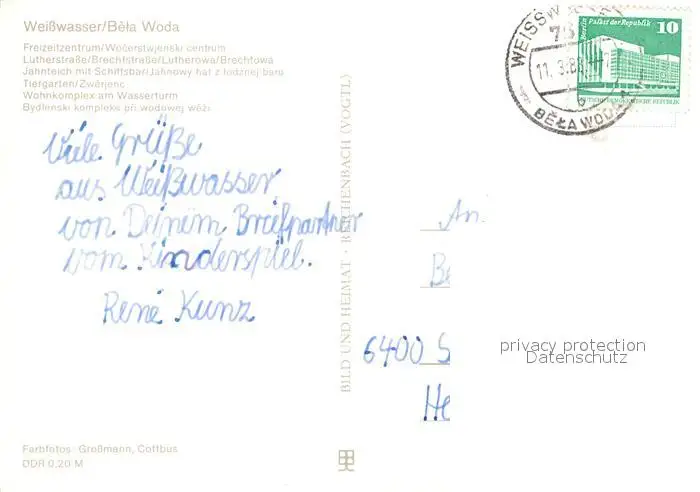 Weißwasser/Běła Woda
Freizeitzentrum/Wočerstwjenski centrum
Lutherstraße/Brechtstraße/Lutherowa/Brechtowa
Jahnteich mit Schiffsbar/Jahnowy hat z łódźnej baru
Tiergarten/Zwěrjenc
Wohnkomplex am Wasserturm
Bydlenski kompleks při wodowej wěži
Viele Grüße
aus Weißwasser
von Deinem Briefpartner
vom Kinderspiel.
René Kunz
Farbfotos: Großmann, Cottbus
DDR 0,20 M
BILD UND HEIMAT · REICHENBACH (VOGTL)
WEISSW
75
11.3.88
BĚŁA WODA
Berlin Palast der Republik
10
DEUTSCHE DEMOKRATISCHE REPUBLIK
An
Be
6400 S
He
privacy protection
Datenschutz